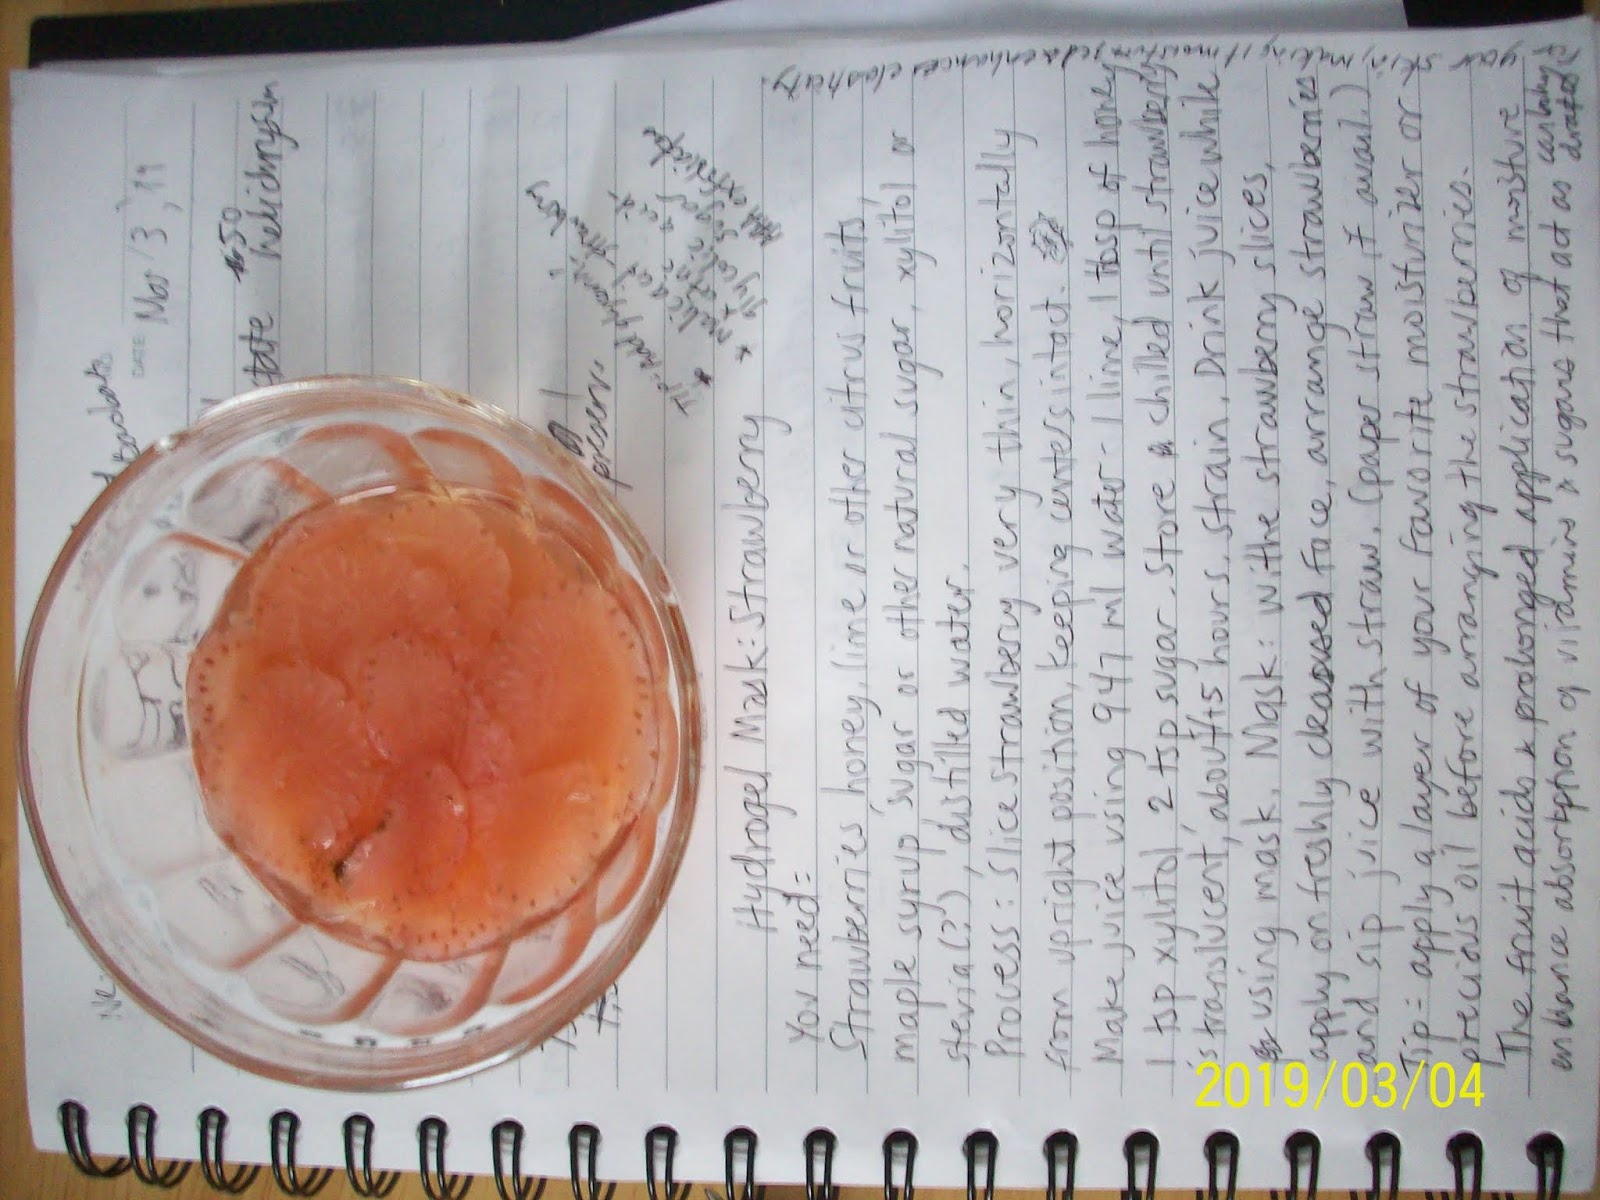 DATE Mar / 3, '19
50
helichrysum
Hydrogel Mask: Strawberry
You need:
Strawberries honey, lime or other citrus fruits,
maple syrup, sugar or other natural sugar, xylitol or
stevia (?), distilled water.
Process: Slice strawberry very thin, horizontally
from upright position, keeping centers intact.
Make juice using 947 ml water - 1 lime, 1 tbsp of honey
1 tsp xylitol 2 tsp sugar. Store chilled until strawberry
is translucent, about 45 hours. Strain. Drink juice while
using mask. Mask: with the strawberry slices,
apply on freshly cleansed face, arrange strawberries
and sip juice with straw. (paper straw if avail.)
Tip = apply a layer of your favorite moisturizer or
precious oil before arranging the strawberries.
The fruit acids & prolonged application of moisture
enhance absorption of vitamins & sugars that act as
your skin, making it moisturized & enhances elasticity.
* malic acid
glycolic acid
sugar
AHA exfoliator
strawberry
2019/03/04